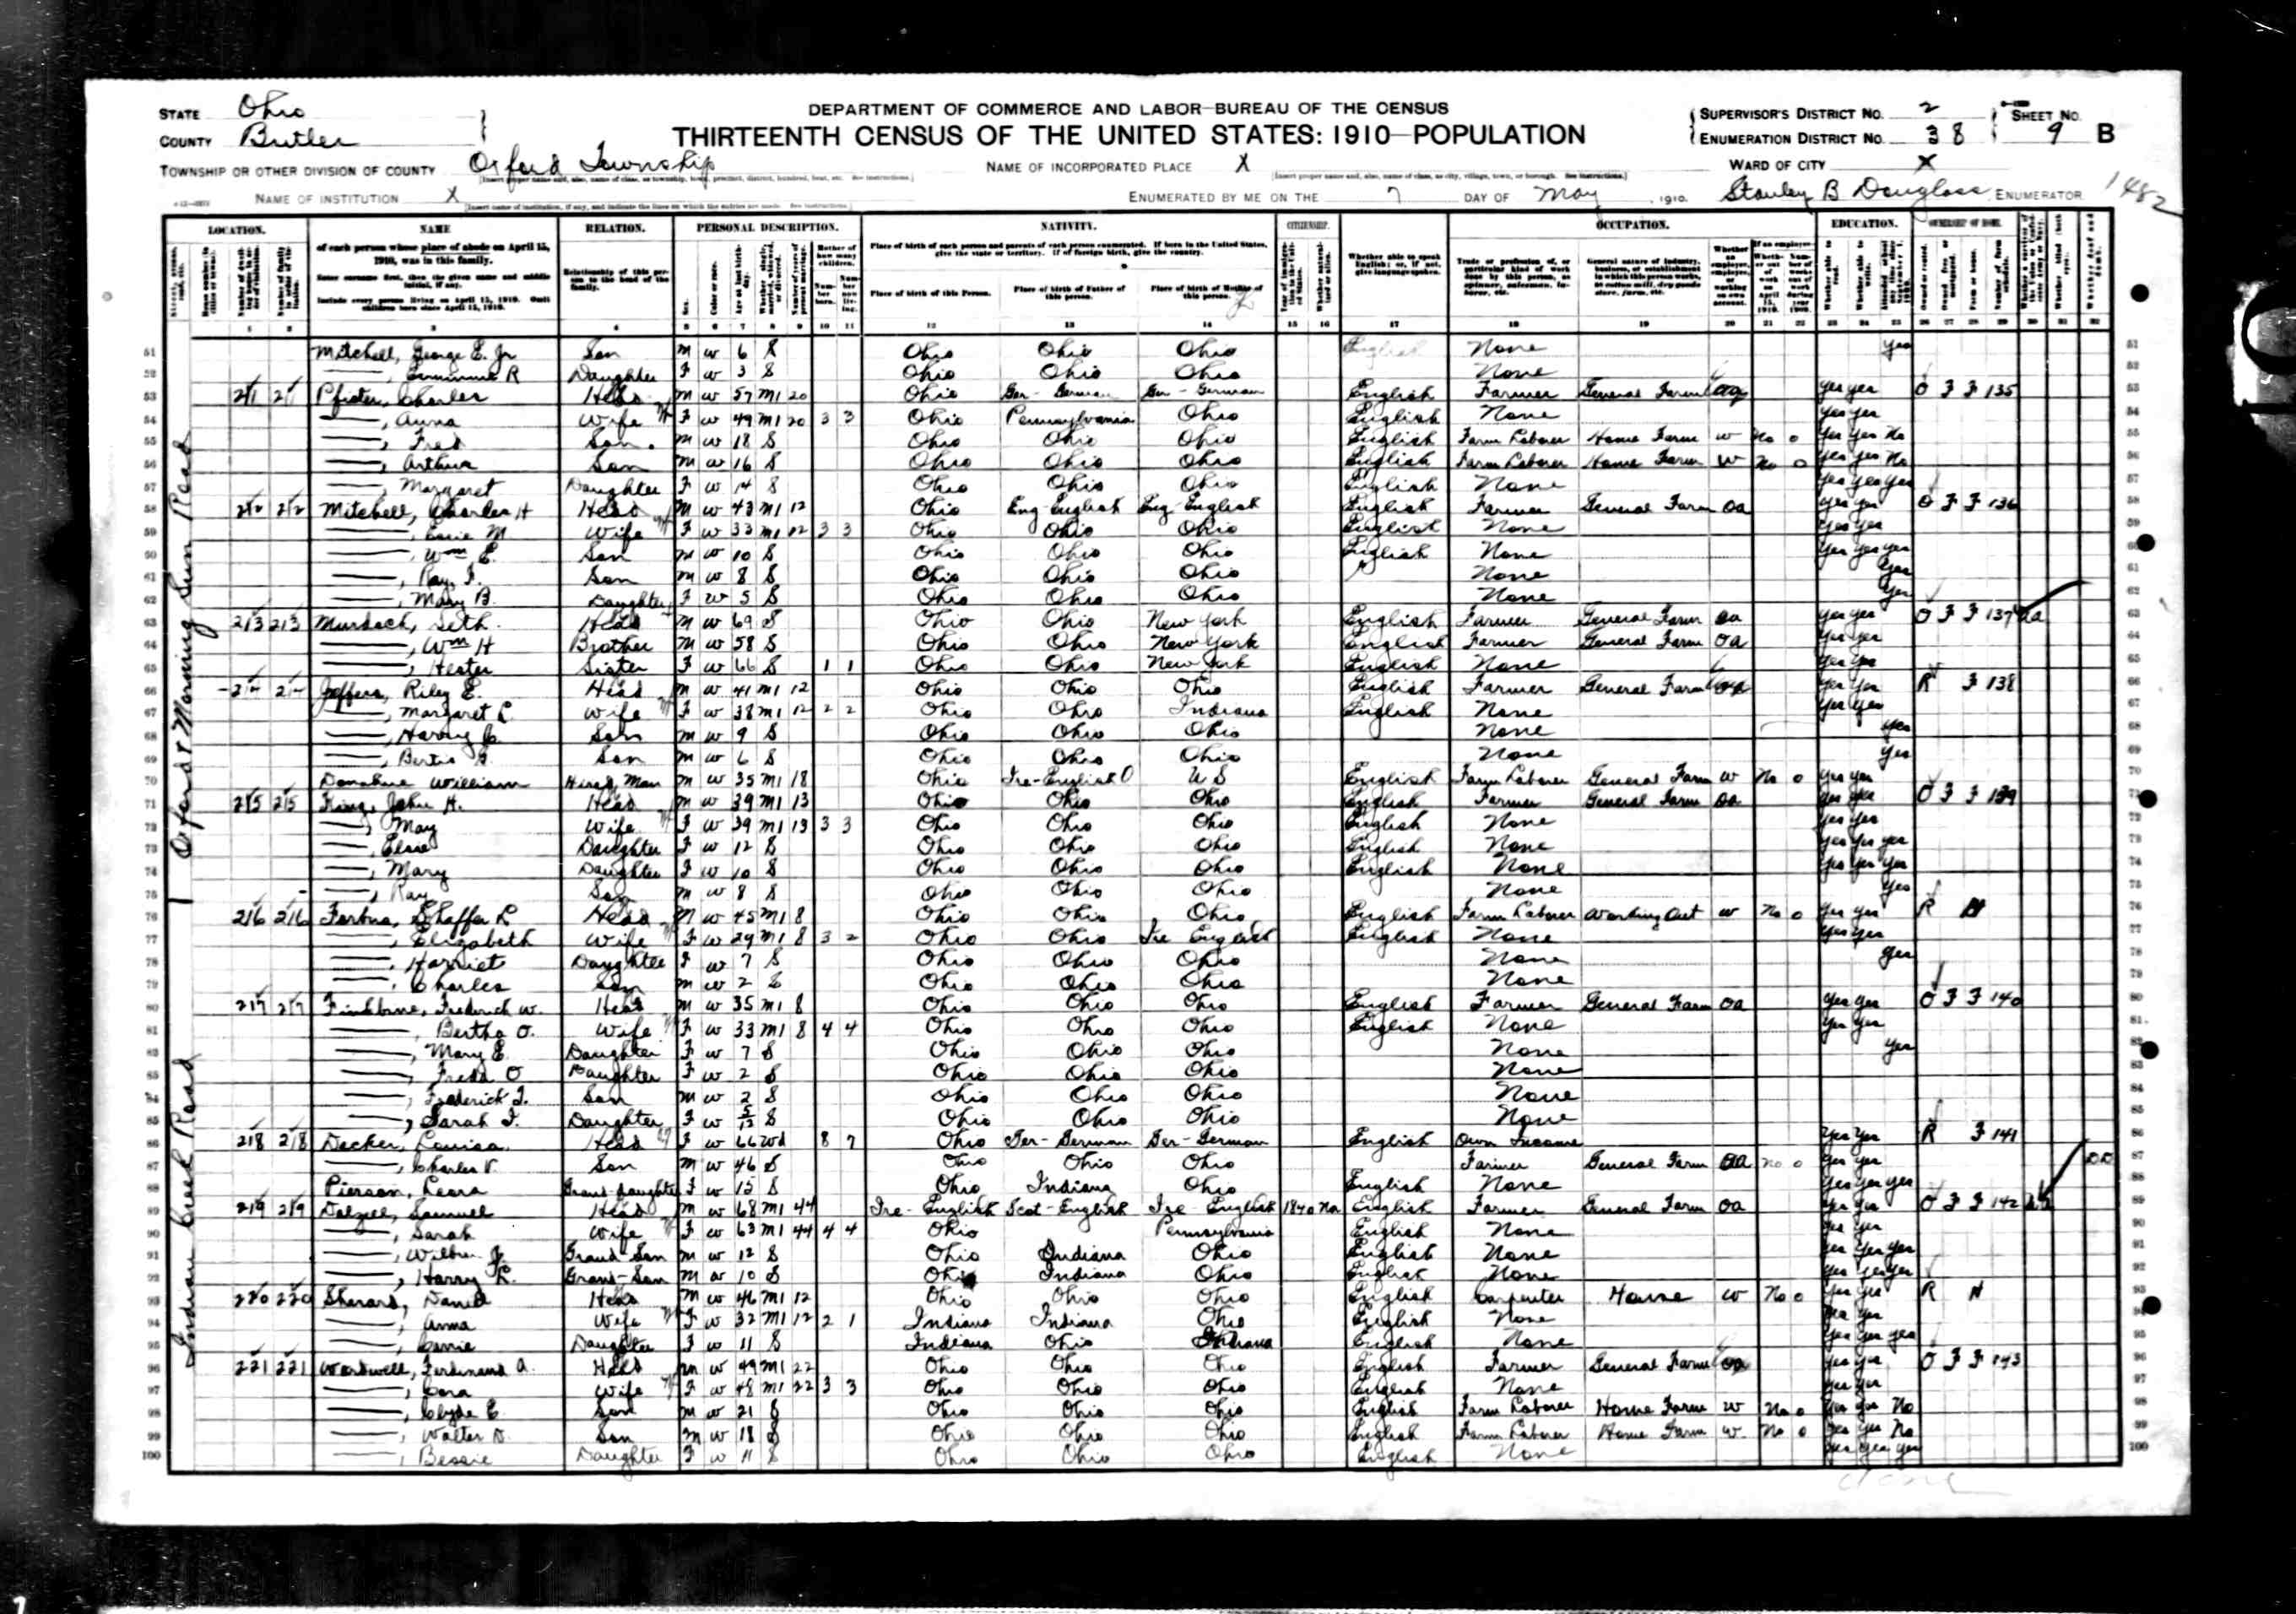 STATE Ohio
COUNTY Butler
DEPARTMENT OF COMMERCE AND LABOR—BUREAU OF THE CENSUS
THIRTEENTH CENSUS OF THE UNITED STATES: 1910—POPULATION
SUPERVISOR'S DISTRICT NO. 2
ENUMERATION DISTRICT NO. 38
SHEET NO. 9 B
TOWNSHIP OR OTHER DIVISION OF COUNTY Oxford Township
NAME OF INCORPORATED PLACE X
WARD OF CITY X
NAME OF INSTITUTION X
ENUMERATED BY ME ON THE 7 DAY OF May, 1910. Stanley B Douglass, ENUMERATOR
1482
LOCATION. NAME RELATION. PERSONAL DESCRIPTION. NATIVITY. CITIZENSHIP. OCCUPATION. EDUCATION. OWNERSHIP OF HOME.
of each person whose place of abode on April 15, 1910, was in this family.
Enter surname first, then the given name and middle initial, if any.
Include every person living on April 15, 1910. Omit children born since April 15, 1910.
Relationship of this person to the head of the family.
Place of birth of each person and parents of each person enumerated. If born in the United States, give the state or territory. If of foreign birth, give the country.
Place of birth of this Person. Place of birth of Father of this person. Place of birth of Mother of this person.
Whether able to speak English; or, if not, give language spoken.
Oxford & Morning Sun Road
Indian Creek Road
51 Mitchell, George E. Jr Son M W 6 S Ohio Ohio Ohio English None Yes
52 ——, R Daughter F W 3 S Ohio Ohio Ohio None
53 211 211 Charles Head M W 57 M1 20 Ohio Ger - German Ger - German English Farmer General Farm OA Yes Yes O F F 135
54 ——, Anna Wife F W 49 M1 20 3 3 Ohio Pennsylvania Ohio English None Yes Yes
55 ——, Fred Son M W 18 S Ohio Ohio Ohio English Farm Laborer Home Farm W No 0 Yes Yes No
56 ——, Arthur Son M W 16 S Ohio Ohio Ohio English Farm Laborer Home Farm W No 0 Yes Yes No
57 ——, Margaret Daughter F W 14 S Ohio Ohio Ohio English None Yes Yes Yes
58 212 212 Mitchell, Charles H Head M W 43 M1 12 Ohio Eng-English Eng-English English Farmer General Farm OA Yes Yes O F F 136
59 ——, M Wife F W 33 M1 12 3 3 Ohio Ohio Ohio English None Yes Yes
60 ——, Wm E. Son M W 10 S Ohio Ohio Ohio English None Yes Yes Yes
61 ——, Ray Son M W 8 S Ohio Ohio Ohio None Yes
62 ——, Mary B. Daughter F W 5 S Ohio Ohio Ohio None Yes
63 213 213 Murdock, Seth Head M W 69 S Ohio Ohio New York English Farmer General Farm OA Yes Yes O F F 137
64 ——, Wm H Brother M W 58 S Ohio Ohio New York English Farmer General Farm OA Yes Yes
65 ——, Hester Sister F W 66 S 1 1 Ohio Ohio New York English None Yes Yes
66 214 214 Jeffers, Riley E. Head M W 41 M1 12 Ohio Ohio Ohio English Farmer General Farm OA Yes Yes R F 138
67 ——, Margaret L. Wife F W 38 M1 12 2 2 Ohio Ohio Indiana English None Yes Yes
68 ——, Harry Son M W 9 S Ohio Ohio Ohio None Yes
69 ——, Son M W 6 S Ohio Ohio Ohio None Yes
70 Donahue William Hired Man M W 35 M1 18 Ohio Ire-English U S English Farm Laborer General Farm W No 0 Yes Yes
71 215 215 King, John H. Head M W 39 M1 13 Ohio Ohio Ohio English Farmer General Farm OA Yes Yes O F F 139
72 ——, May Wife F W 39 M1 13 3 3 Ohio Ohio Ohio English None Yes Yes
73 ——, Elsie Daughter F W 12 S Ohio Ohio Ohio English None Yes Yes Yes
74 ——, Mary Daughter F W 10 S Ohio Ohio Ohio English None Yes Yes Yes
75 ——, Ray Son M W 8 S Ohio Ohio Ohio None Yes
76 216 216 Shaffer L Head M W 45 M1 8 Ohio Ohio Ohio English Farm Laborer Working Out W No 0 Yes Yes R H
77 ——, Elizabeth Wife F W 29 M1 8 3 2 Ohio Ohio Ire English English None Yes Yes
78 ——, Harriet Daughter F W 7 S Ohio Ohio Ohio None Yes
79 ——, Charles Son M W 2 S Ohio Ohio Ohio None
80 217 217 Frederick W. Head M W 35 M1 8 Ohio Ohio Ohio English Farmer General Farm OA Yes Yes O F F 140
81 ——, Bertha O. Wife F W 33 M1 8 4 4 Ohio Ohio Ohio English None Yes Yes
82 ——, Mary E. Daughter F W 7 S Ohio Ohio Ohio None Yes
83 ——, Freda O Daughter F W 2 S Ohio Ohio Ohio None
84 ——, Frederick Son M W 2 S Ohio Ohio Ohio None
85 ——, Sarah Daughter F W 5/12 S Ohio Ohio Ohio None
86 218 218 Decker, Louisa Head F W 66 Wd 8 7 Ohio Ger-German Ger-German English Own Income Yes Yes R F 141
87 ——, Charles V. Son M W 46 S Ohio Ohio Ohio Farmer General Farm OA No 0 Yes Yes DD
88 Pierson, Leora Grand-daughter F W 15 S Ohio Indiana Ohio English None Yes Yes Yes
89 219 219 Dalzell, Samuel Head M W 68 M1 44 Ire-English Scot-English Ire-English 1840 Na English Farmer General Farm OA Yes Yes O F F 142
90 ——, Sarah Wife F W 63 M1 44 4 4 Ohio Pennsylvania English None Yes Yes
91 ——, Wilbur Grand Son M W 12 S Ohio Indiana Ohio English None Yes Yes Yes
92 ——, Harry L. Grand-Son M W 10 S Ohio Indiana Ohio English None Yes Yes Yes
93 220 220 Sherard, Daniel Head M W 46 M1 12 Ohio Ohio Ohio English Carpenter House W No 0 Yes Yes R H
94 ——, Anna Wife F W 32 M1 12 2 1 Indiana Indiana Ohio English None Yes
95 ——, Carrie Daughter F W 11 S Indiana Ohio Indiana English None Yes Yes Yes
96 221 221 Wardwell, Ferdinand A. Head M W 49 M1 22 Ohio Ohio Ohio English Farmer General Farm OA Yes Yes O F F 143
97 ——, Cora Wife F W 48 M1 22 3 3 Ohio Ohio Ohio English None Yes Yes
98 ——, Clyde E. Son M W 21 S Ohio Ohio Ohio English Farm Laborer Home Farm W No 0 Yes Yes No
99 ——, Walter D. Son M W 18 S Ohio Ohio Ohio English Farm Laborer Home Farm W No 0 Yes Yes No
100 ——, Bessie Daughter F W 11 S Ohio Ohio Ohio English None Yes Yes Yes